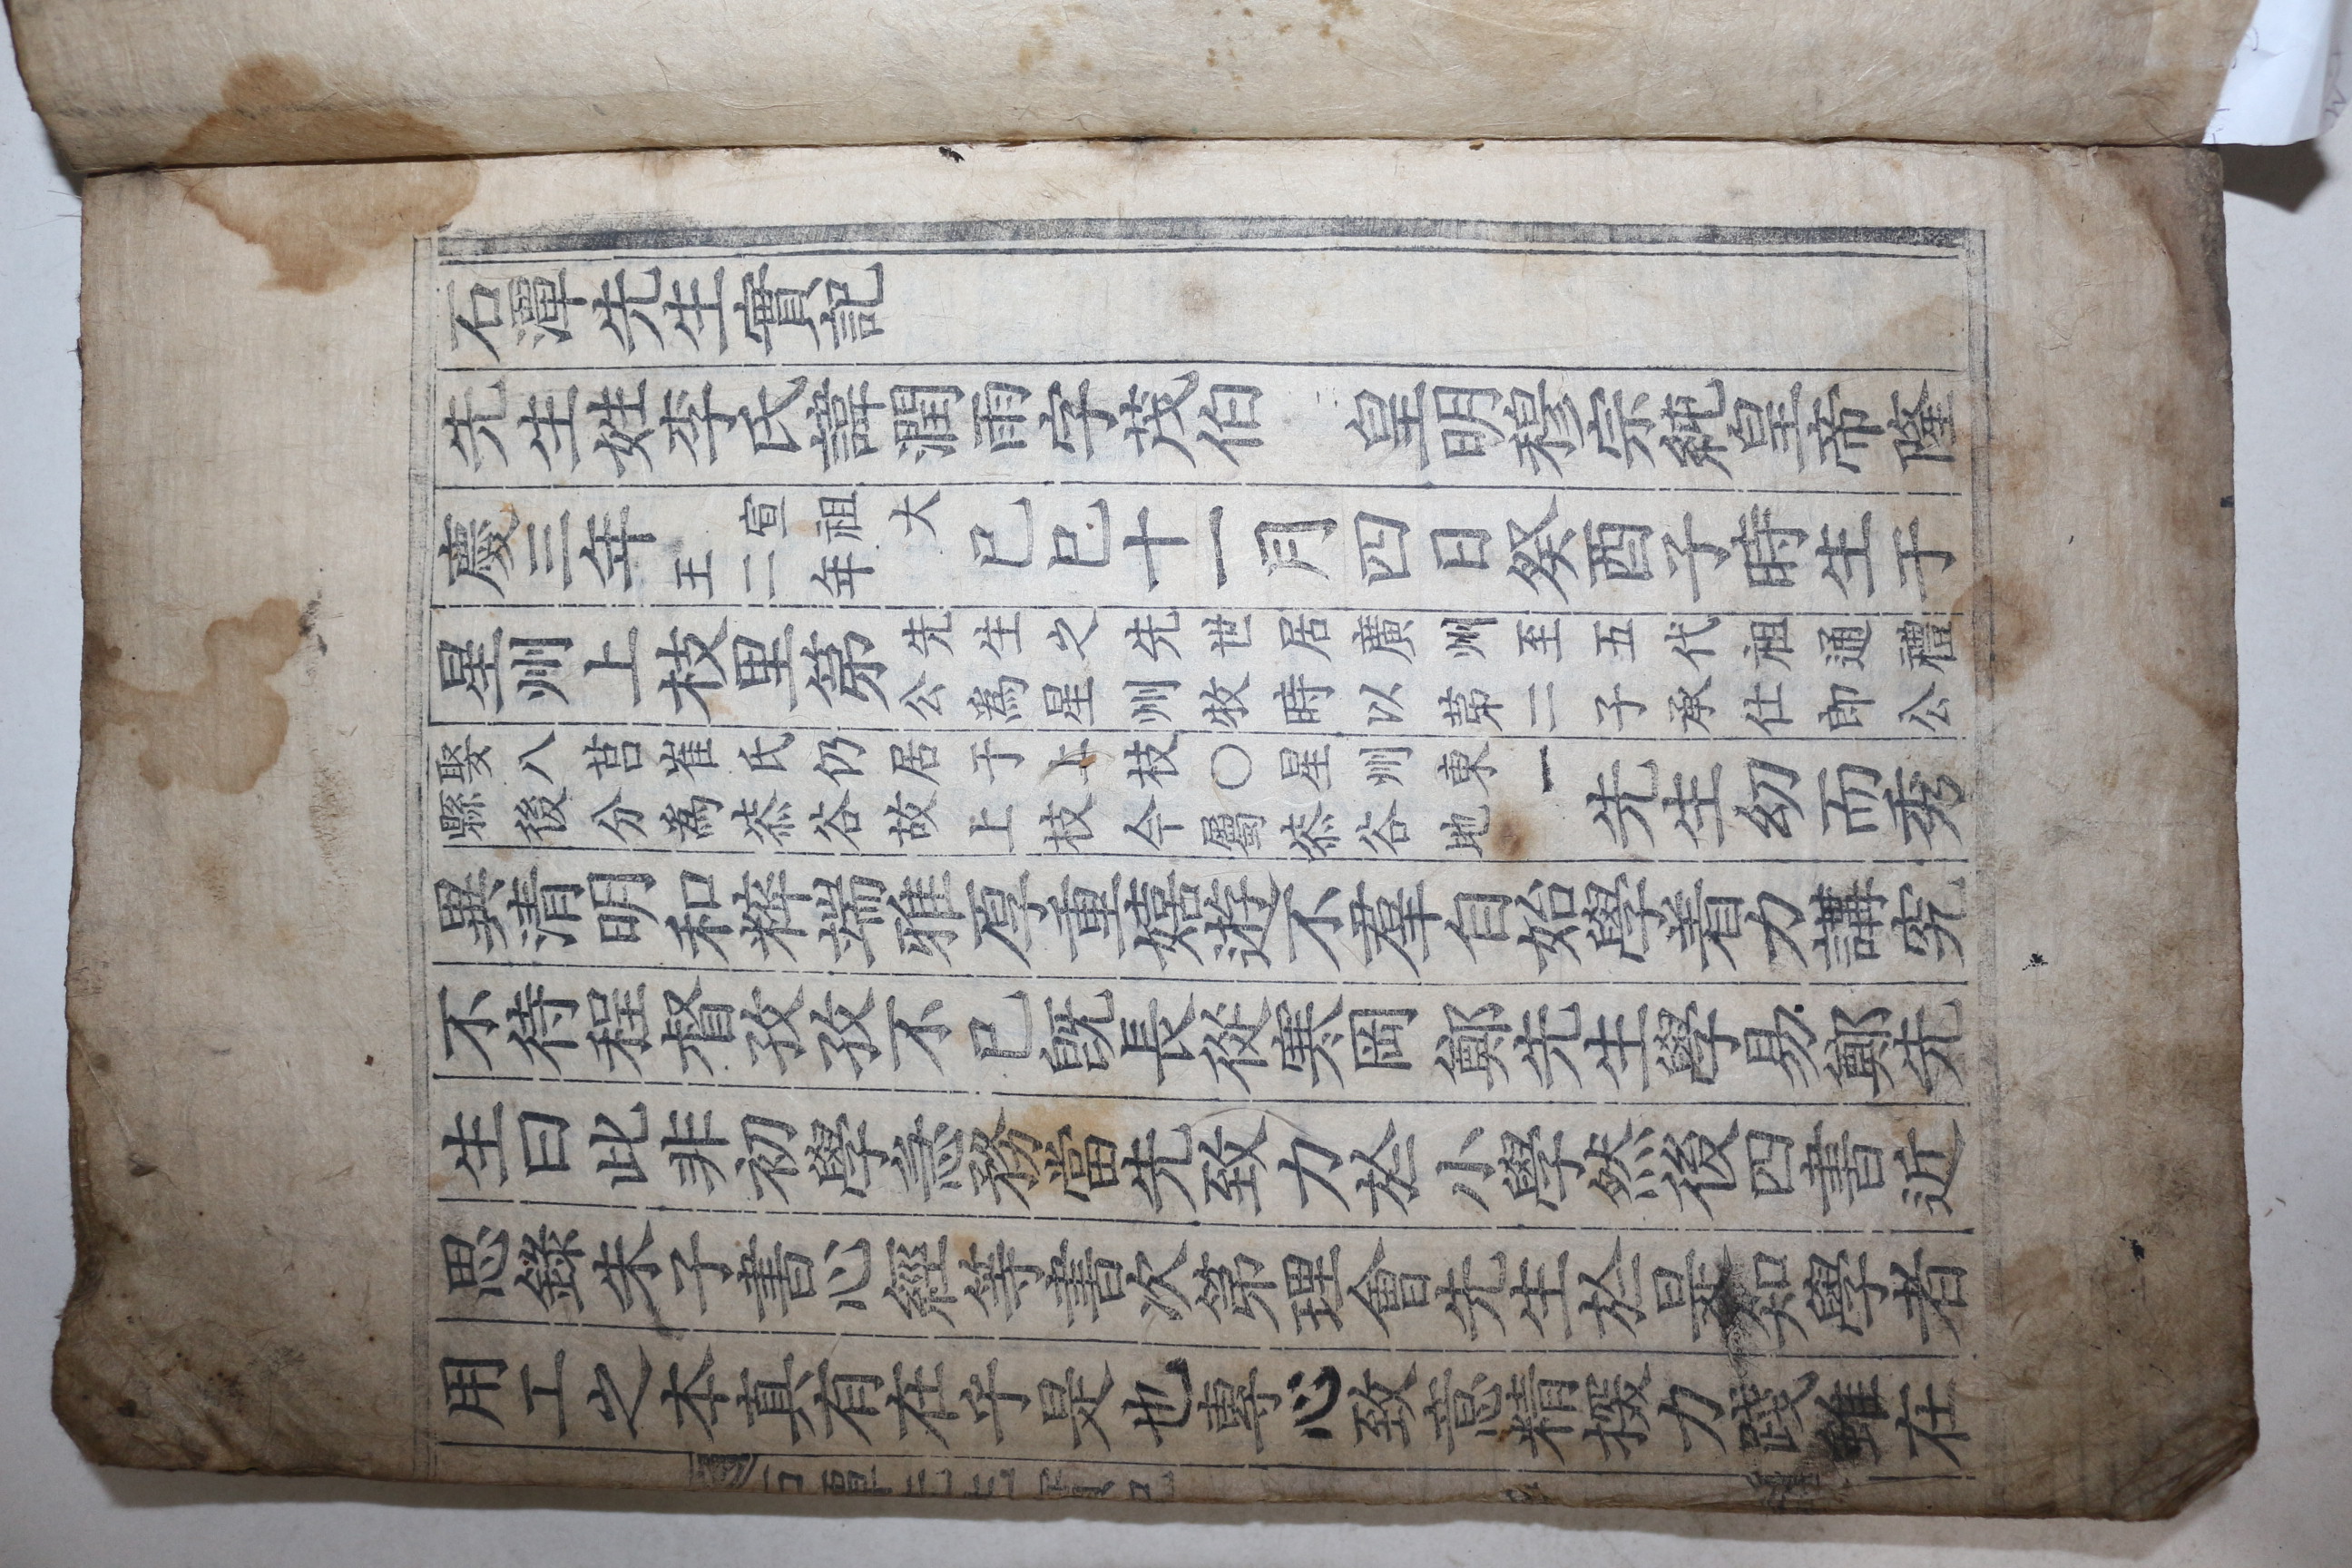 石潭先生實記
先生姓李氏諱潤雨字茂伯 皇明穆宗純皇帝隆
慶三年宣祖大王二年己巳十一月四日癸酉子時生于
星州上枝里第先生之先世居廣州至五代祖通禮公為星州牧時以第二子承仕郎公
娶八莒崔氏仍居于上枝○星州東一縣後分為桼谷故上枝今屬桼谷地先生幼而秀
異清明和粹端雅厚重嬉遊不羣自始學着力講究
不待程督孜孜不已旣長從寒岡鄭先生學易鄭先
生曰此非初學急務當先致力於小學然後四書近
思錄朱子書心經等書次第理會先生於是知學者
用工之本真有在乎是也專心致意精擇力踐雖在